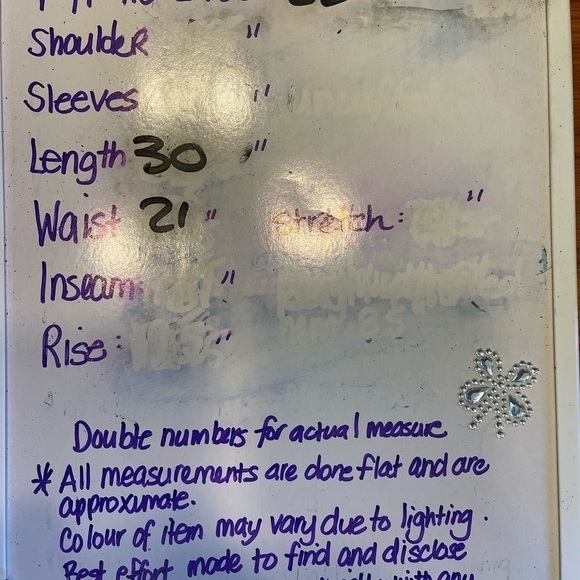 Shoulder "
Sleeves "
Length 30 "
Waist 21 " Stretch: "
Inseam "
Rise: "
Double numbers for actual measure
* All measurements are done flat and are
approximate.
Colour of item may vary due to lighting.
Best effort made to find and disclose
with any